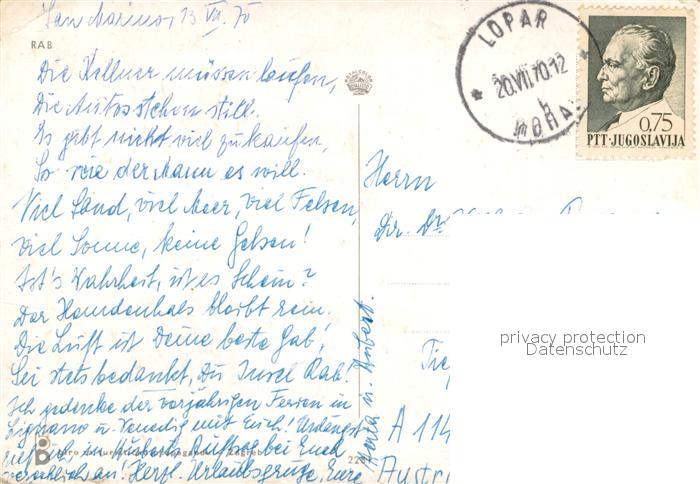 San Marino, 13 VII. 70
RAB
Die Kellner müssen laufen,
Die Autos stehen still.
Es gibt nicht viel zu kaufen,
So wie der Mann es will.
Viel Sand, viel Meer, viel Felsen,
viel Sonne, keine Gelsen!
Ist's Wahrheit, ist es Schein?
Der Hemdenhals bleibt rein.
Die Luft ist Deine beste Gab',
Sei stets bedankt, Du Insel Rab!
Ich gedenke der vorjährigen Ferien in
Lignano u. Venedig mit Euch! Unlängst
rief ich in Hubert. Auftrag bei Euch
vergeblich an! Herzl. Urlaubsgrüße, Eure
Herta u. Hubert.
Zagreb
LOPAR
20.VII.70.12
h
0,75
PTT·JUGOSLAVIJA
Herrn
Dir. Dr.
A 114
Austri
privacy protection
Datenschutz